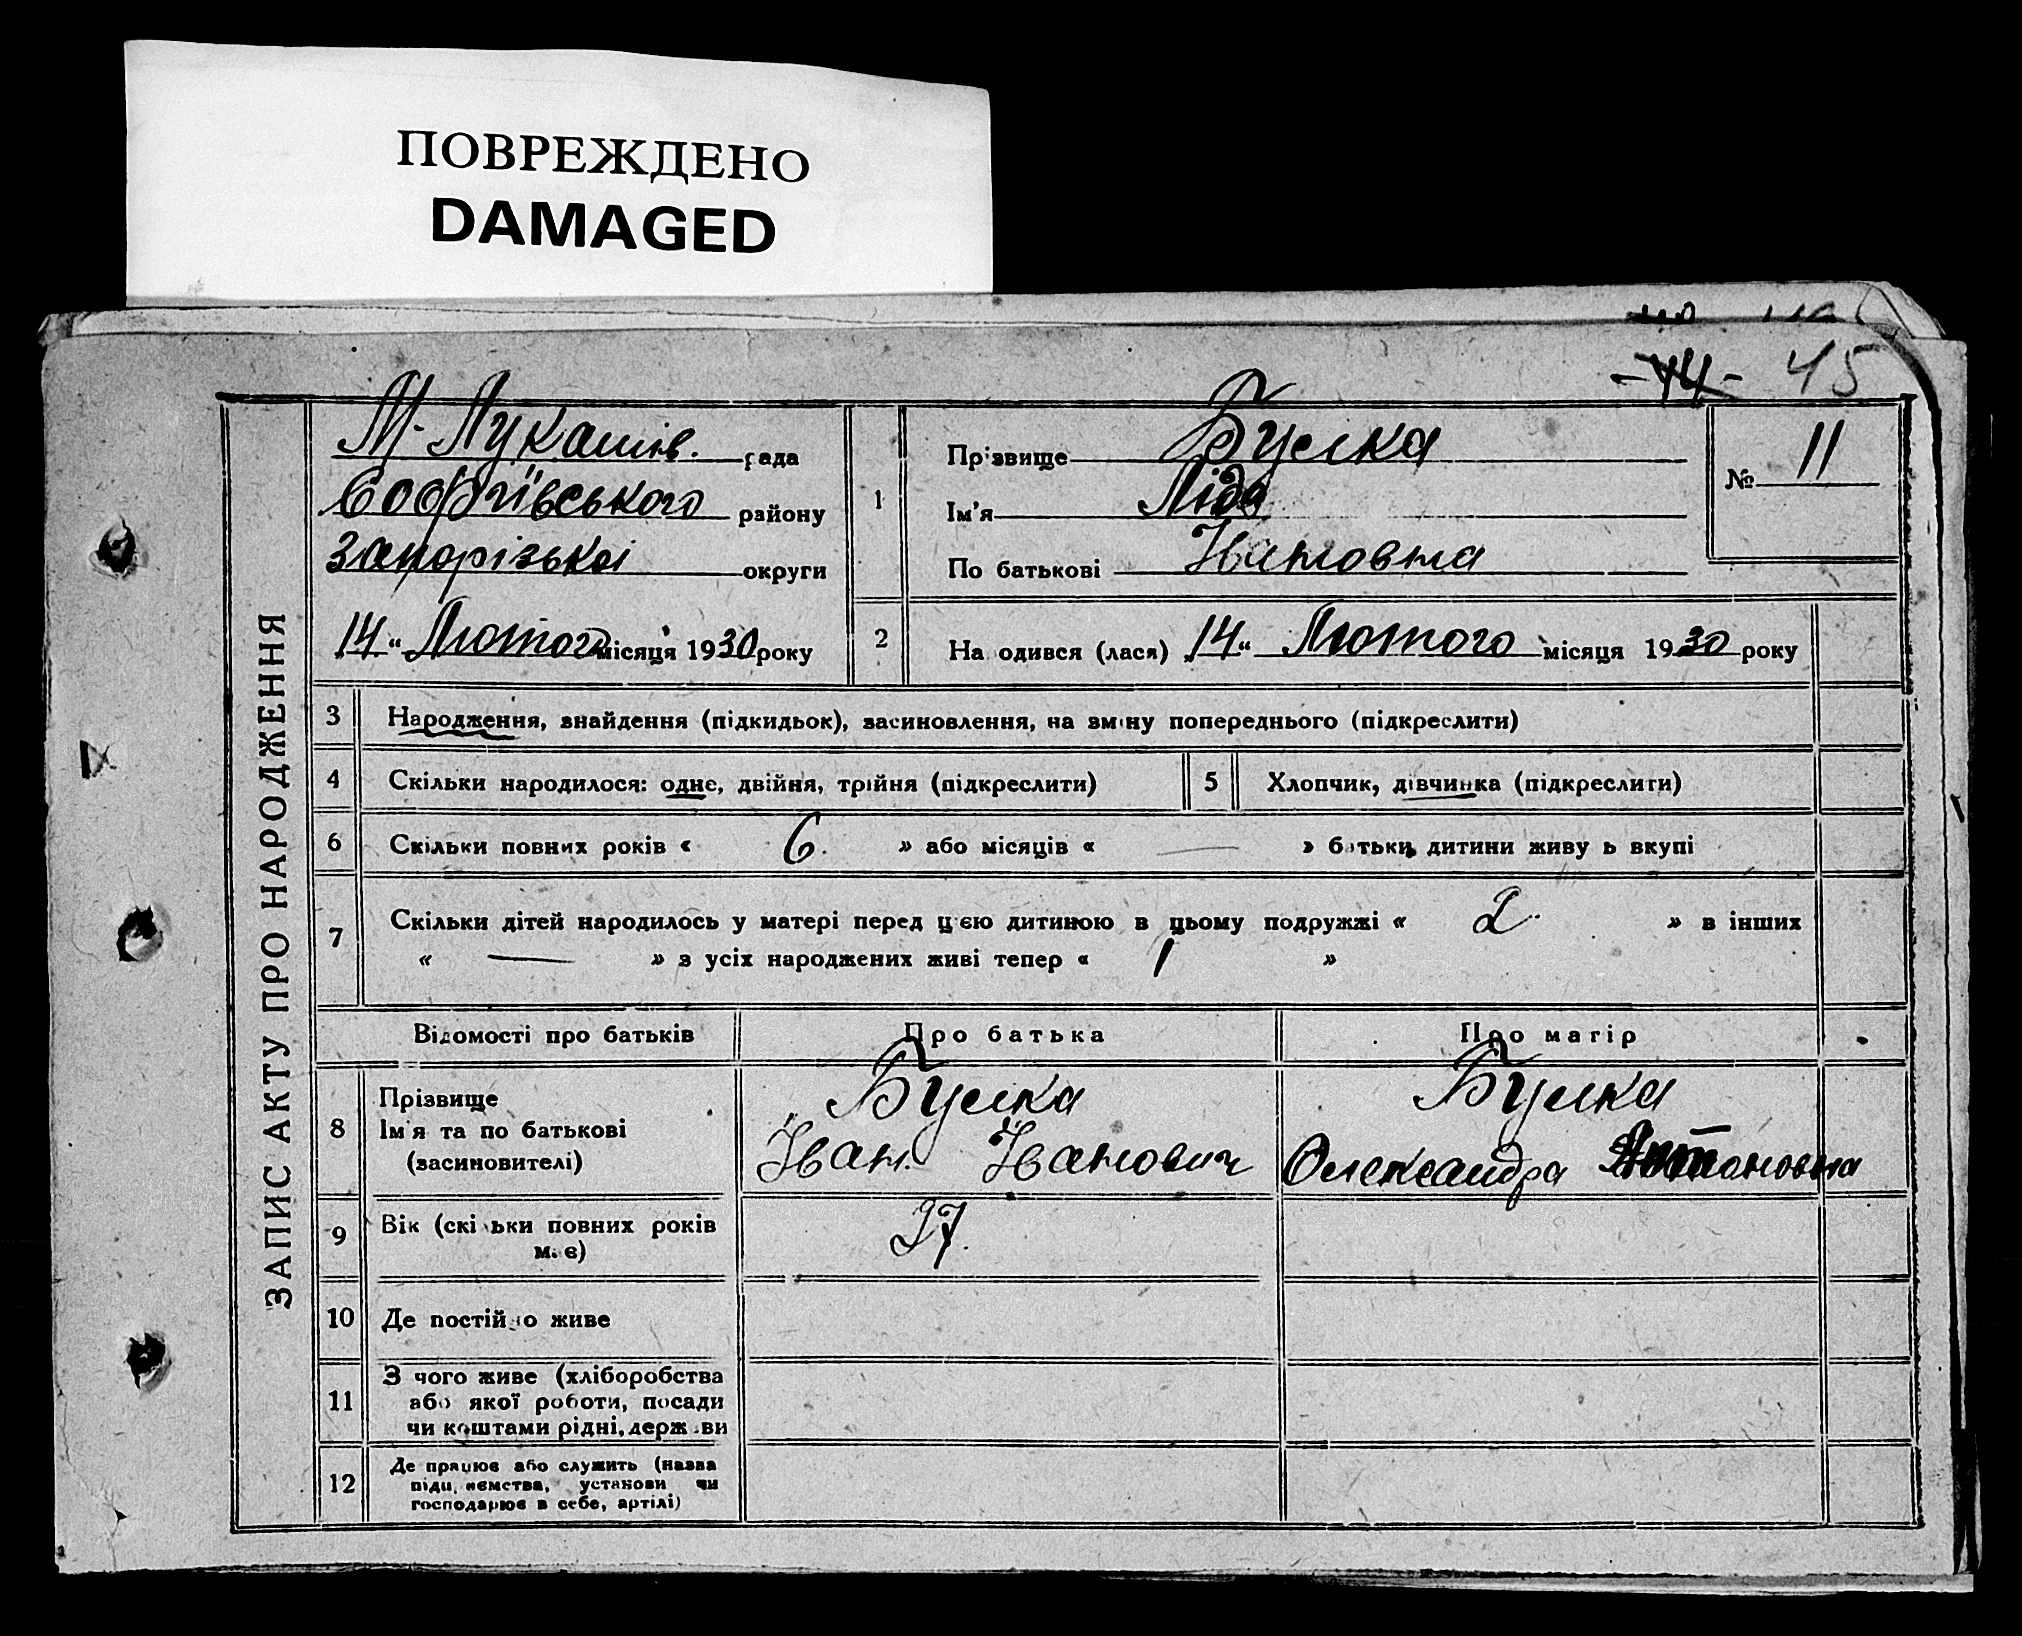 ПОВРЕЖДЕНО
DAMAGED
-44- 45
ЗАПИС АКТУ ПРО НАРОДЖЕННЯ
М. Лукашів. рада
Софіївського району
Запорізької округи
14 " Лютого місяця 1930 року
1
Прізвище Булка
Ім'я Ліда
По батькові Івановна
№ 11
2 На одився (лася) 14 " Лютого місяця 1930 року
3 Народження, знайдення (підкидьок), засиновлення, на зміну попереднього (підкреслити)
4 Скільки народилося: одне, двійня, трійня (підкреслити) 5 Хлопчик, дівчинка (підкреслити)
6 Скільки повних років « 6. » або місяців « — » батьки дитини живу ь вкупі
7 Скільки дітей народилось у матері перед цією дитиною в цьому подружжі « 2. » в інших
« — » з усіх народжених живі тепер « 1 »
Відомості про батьків Про батька Про матір
8 Прізвище Булка Булка
Ім'я та по батькові Іван. Іванович Олександра Антоновна
(засиновителі)
9 Вік (скільки повних років 27.
має)
10 Де постійно живе
11 З чого живе (хліборобства
або якої роботи, посади
чи коштами рідні, держави
12 Де працює або служить (назва
підприємства, установи чи
господарює в себе, артілі)